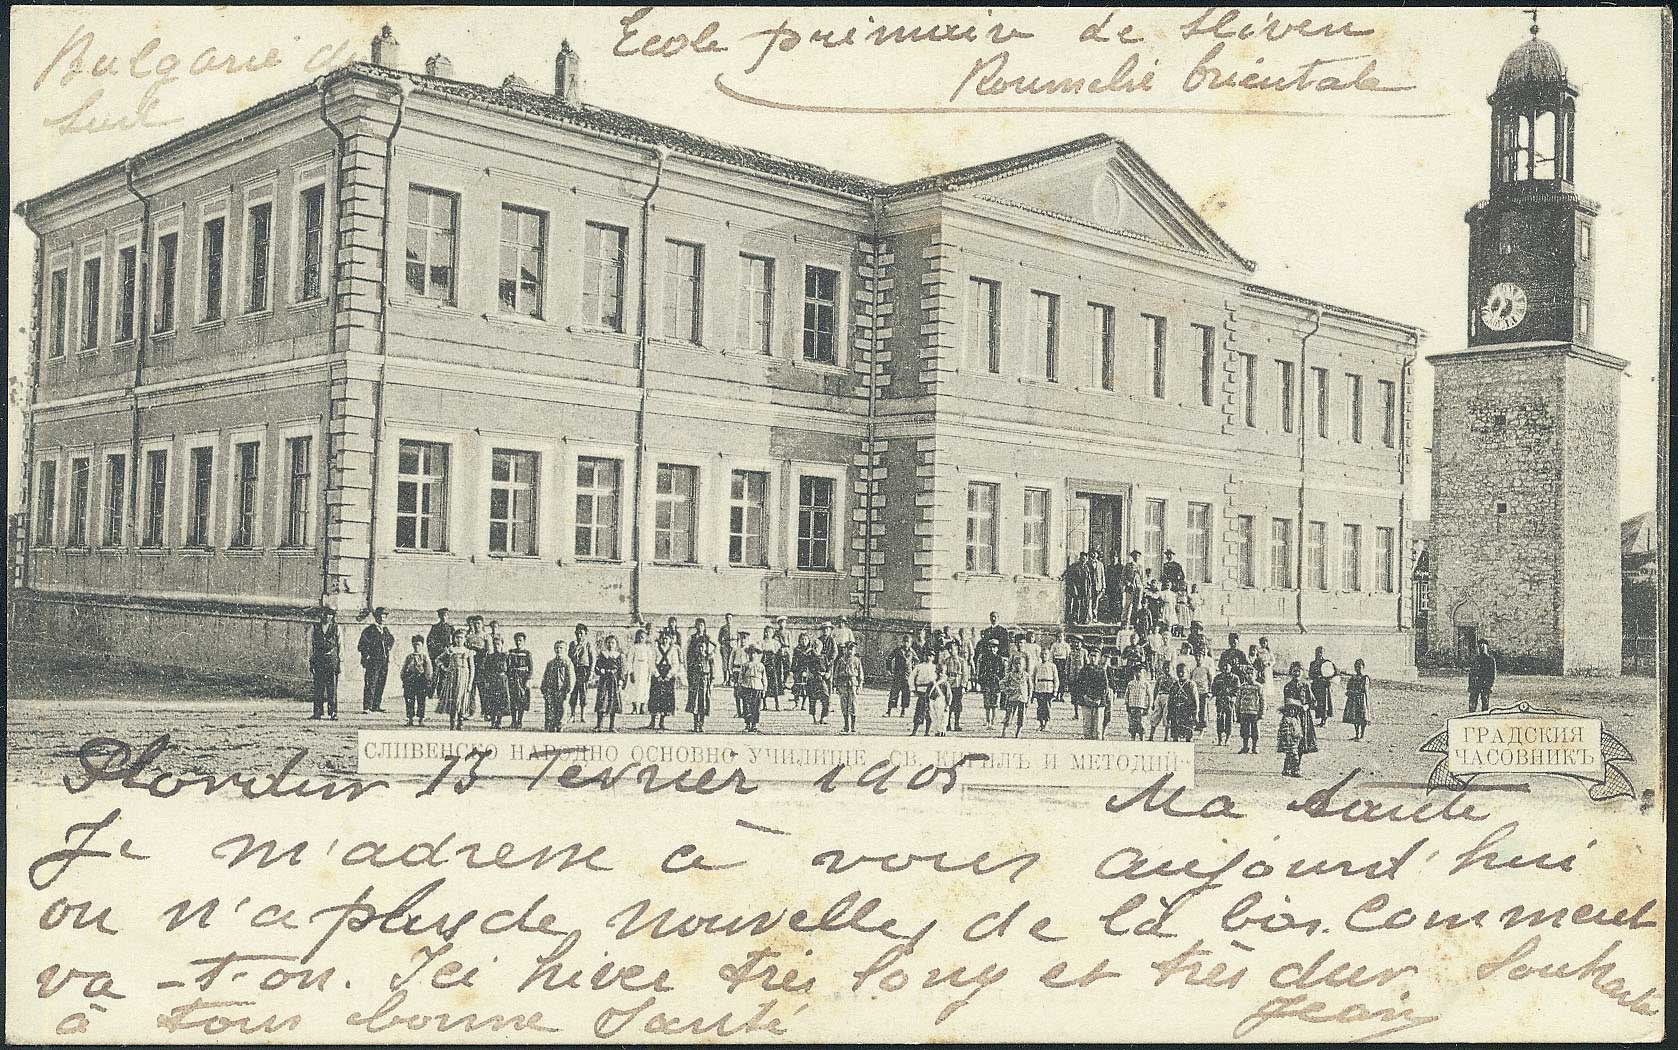 Bulgarie du
Sud
Ecole primaire de Sliven
Roumelie Orientale
СЛИВЕНСКО НАРОДНО ОСНОВНО УЧИЛИЩЕ „СВ. КИРИЛЪ И МЕТОДИЙ“
ГРАДСКИЯ
ЧАСОВНИКЪ
13 Fevrier 1905
Ma tante
Je m'adresse à vous aujourd'hui
on n'a plus de nouvelles de là bas. Comment
va-t-on. Ici hiver très long et très dur. Souhaite
à tous bonne Santé
Jean